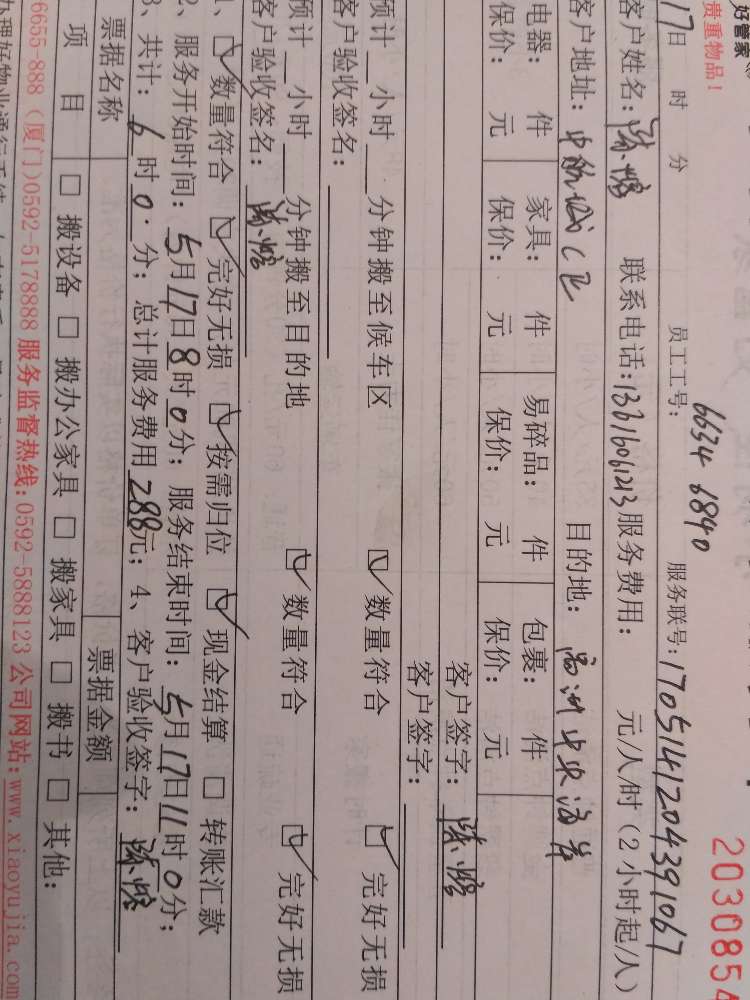 好管家
贵重物品！ 2030854
17日 时 分 员工工号：6634 6840 服务联号：1705141204391067
客户姓名：陈 联系电话：13616061213 服务费用： 元/人/时（2小时起/人）
客户地址：中航城C区 目的地： 中央海岸
电器： 件 家具： 件 易碎品： 件 包裹： 件
保价： 元 保价： 元 保价： 元 保价： 元
客户签字：陈
客户签字：
预计 小时 分钟搬至候车区 数量符合 完好无损
客户验收签名：
预计 小时 分钟搬至目的地 数量符合 完好无损
客户验收签名：陈
1、☑数量符合 ☑完好无损 ☑按需归位 ☑现金结算 □转账汇款
2、服务开始时间：5月17日8时0分；服务结束时间：5月17日11时0分；
3、共计：6时0分；总计服务费用288元；4、客户验收签字：陈
票据名称 票据金额
项目 □搬设备 □搬办公家具 □搬家具 □搬书 □其他：
6655-888（厦门）0592-5178888 服务监督热线：0592-5888123 公司网站：www.xiaoyujia.com